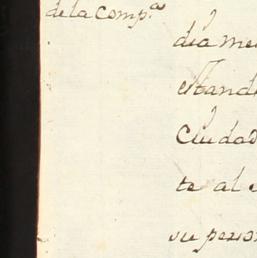 de la Comp.ª
dia me
estand
Ciudad
te al e
su perso